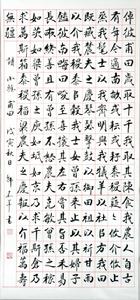 倬彼甫田歲取十千我取其陳食我農人自古
有年今適南畝或耘或耔黍稷薿薿攸介攸止
烝我髦士以我齊明與我犧羊以社以方我田
既臧農夫之慶琴瑟擊鼓以御田祖以祈甘雨
以介我稷黍以穀我士女曾孫來止以其婦子
饁彼南畝田畯至喜攘其左右嘗其旨否禾易
長畝終善且有曾孫不怒農夫克敏曾孫之稼
如茨如梁曾孫之庾如坻如京乃求千斯倉乃
求萬斯箱黍稷稻粱農夫之慶報以介福萬壽
無疆
詩 小雅 甫田 戊寅秋日 書